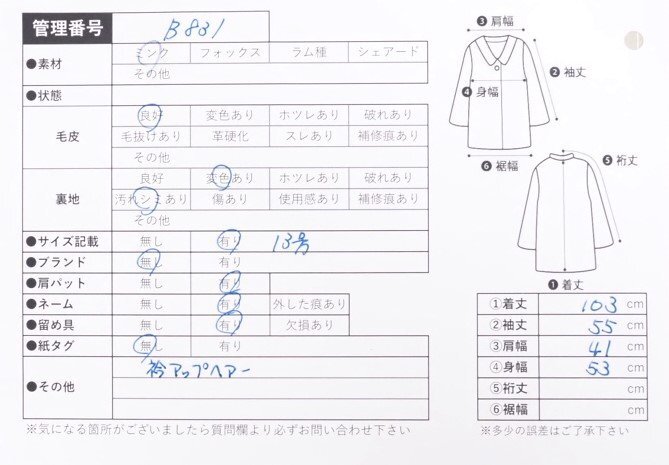 管理番号 B831
●素材 ミンク フォックス ラム種 シェアード
その他
●状態
毛皮 良好 変色あり ホツレあり 破れあり
毛抜けあり 革硬化 スレあり 補修痕あり
その他
裏地 良好 変色あり ホツレあり 破れあり
汚れシミあり 傷あり 使用感あり 補修痕あり
その他
●サイズ記載 無し 有り 13号
●ブランド 無し 有り
●肩パット 無し 有り
●ネーム 無し 有り 外した痕あり
●留め具 無し 有り 欠損あり
●紙タグ 無し 有り
●その他 衿アップヘアー
※気になる箇所がございましたら質問欄より必ずお問い合わせ下さい
❸肩幅
❷袖丈
❹身幅
❻裾幅
❺裄丈
❶着丈
①着丈 103 cm
②袖丈 55 cm
③肩幅 41 cm
④身幅 53 cm
⑤裄丈 cm
⑥裾幅 cm
※多少の誤差はご了承下さい